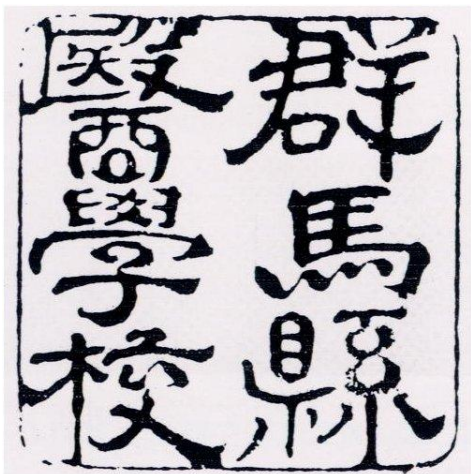 群馬縣
醫學校